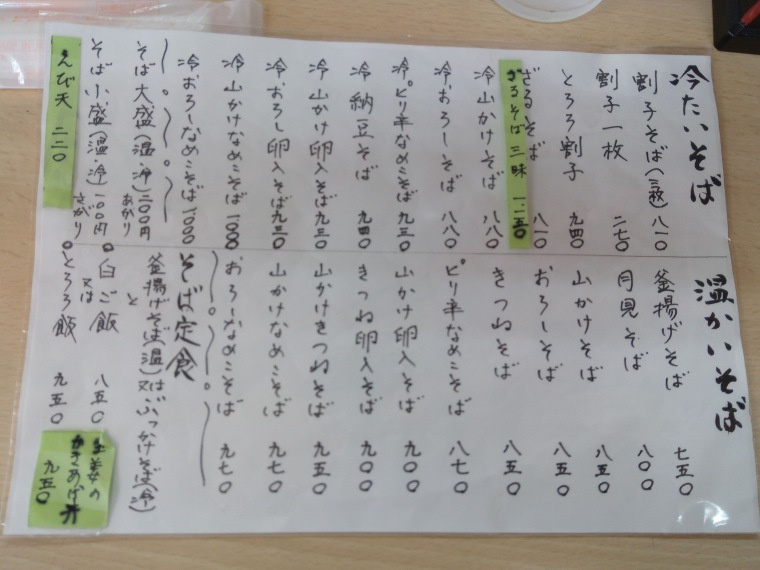 冷たいそば
割子そば(三枚) 八一〇
割子一枚 二七〇
とろろ割子 九四〇
ざるそば 八一〇
ざるそば三昧 一、二五〇
冷山かけそば 八八〇
冷おろしそば 八八〇
冷ピリ辛なめこそば 九三〇
冷納豆そば 九四〇
冷山かけ卵入そば 九三〇
冷おろし卵入そば 九三〇
冷山かけなめこそば 一、〇〇〇
冷おろしなめこそば 一、〇〇〇
そば大盛(温・冷)二〇〇円あがり
そば小盛(温・冷)一〇〇円さがり
えび天 二二〇
温かいそば
釜揚げそば 七五〇
月見そば 八〇〇
山かけそば 八五〇
おろしそば 八五〇
きつねそば 八五〇
ピリ辛なめこそば 八七〇
山かけ卵入そば 九〇〇
きつね卵入そば 九〇〇
山かけきつねそば 九五〇
山かけなめこそば 九七〇
おろしなめこそば 九七〇
そば定食
釜揚げそば(温)又はぶっかけそば(冷)
と
白ご飯 八五〇
又は
とろろ飯 九五〇
生姜の
かきあげ丼
九五〇